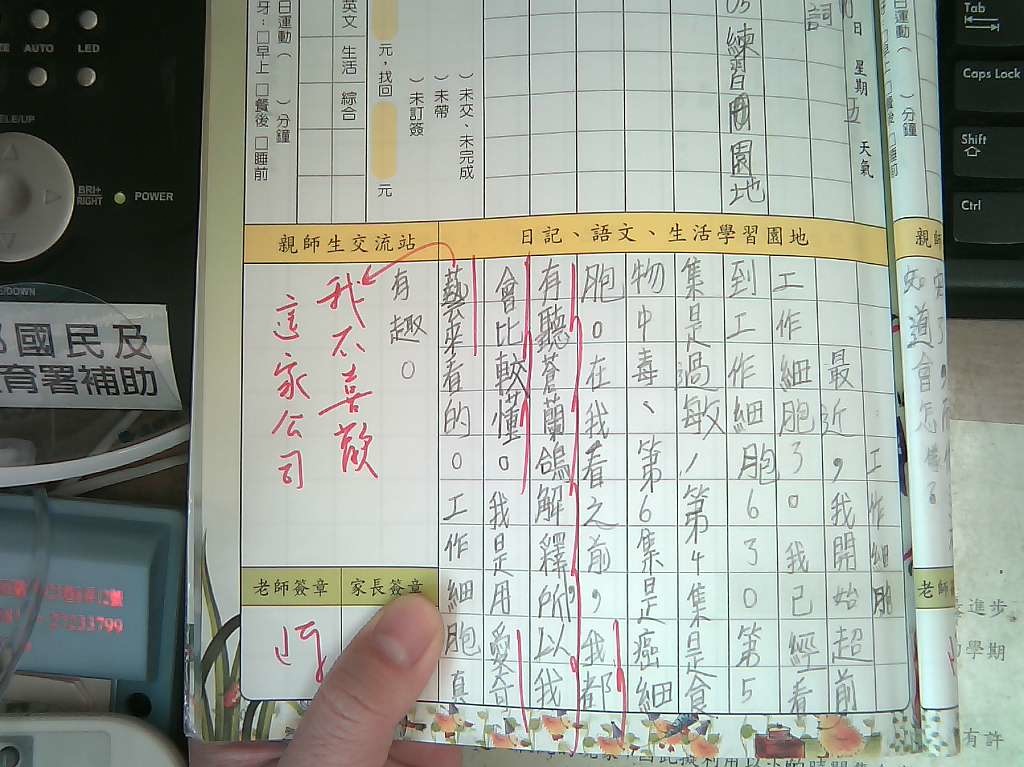 日 星期五 天氣
詞
05 練習冊園地
未交、未完成
未帶
未訂簽
元,找回 元
英文 生活 綜合
日運動( )分鐘
身:□早上 □餐後 □睡前
日記、語文、生活學習園地
親師生交流站
工作細胞
最近,我開始超前
工作細胞了。我已經看
到工作細胞6了。第5
集是過敏,第4集是食
物中毒、第6集是癌細
胞。在我看之前,我都
有聽蒼蘭鴿解釋所以我
會比較懂。我是用愛奇
藝來看的。工作細胞真
有趣。
我不喜歡
這家公司
家長簽章
老師簽章
AUTO
LED
BRI+
RIGHT
POWER
國民及
育署補助
27233799
Tab
Caps Lock
Shift
Ctrl
道會怎
進步
學期
有許